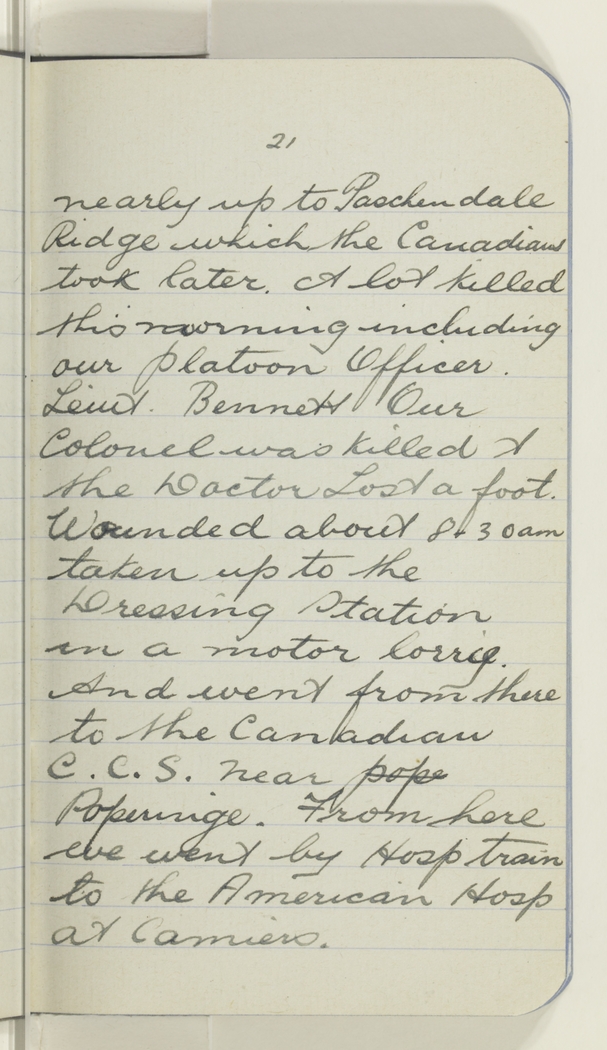 21
nearly up to Paschendale
Ridge which the Canadians
took later. A lot killed
this morning including
our platoon Officer.
Leiut. Bennett Our
Colonel was killed &
the Doctor Lost a foot.
Wounded about 8.30am
taken up to the
Dressing Station
in a motor lorrie.
And went from there
to the Canadian
C.C.S. near pope
Poperinge. From here
we went by Hosp train
to the American Hosp
at Camiers.